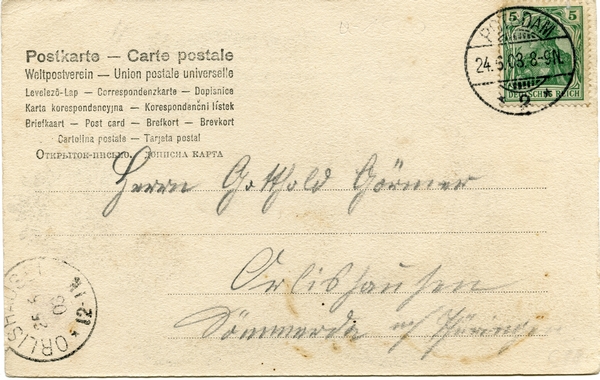 Postkarte — Carte postale
Weltpostverein — Union postale universelle
Levelező-Lap — Correspondenzkarte — Dopisnice
Karta korespondencyjna — Korespondenční lístek
Briefkaart — Post card — Brefkort — Brevkort
Cartolina postale — Tarjeta postal
Открытое письмо. дописна карта
5 5
DEUTSCHES REICH
POTSDAM
24.6.03. 8-9N.
* 2 *
Herrn Gotthold Görmer
Orlishausen
Sömmerda
ORLISHAUSEN
25
03
12-1